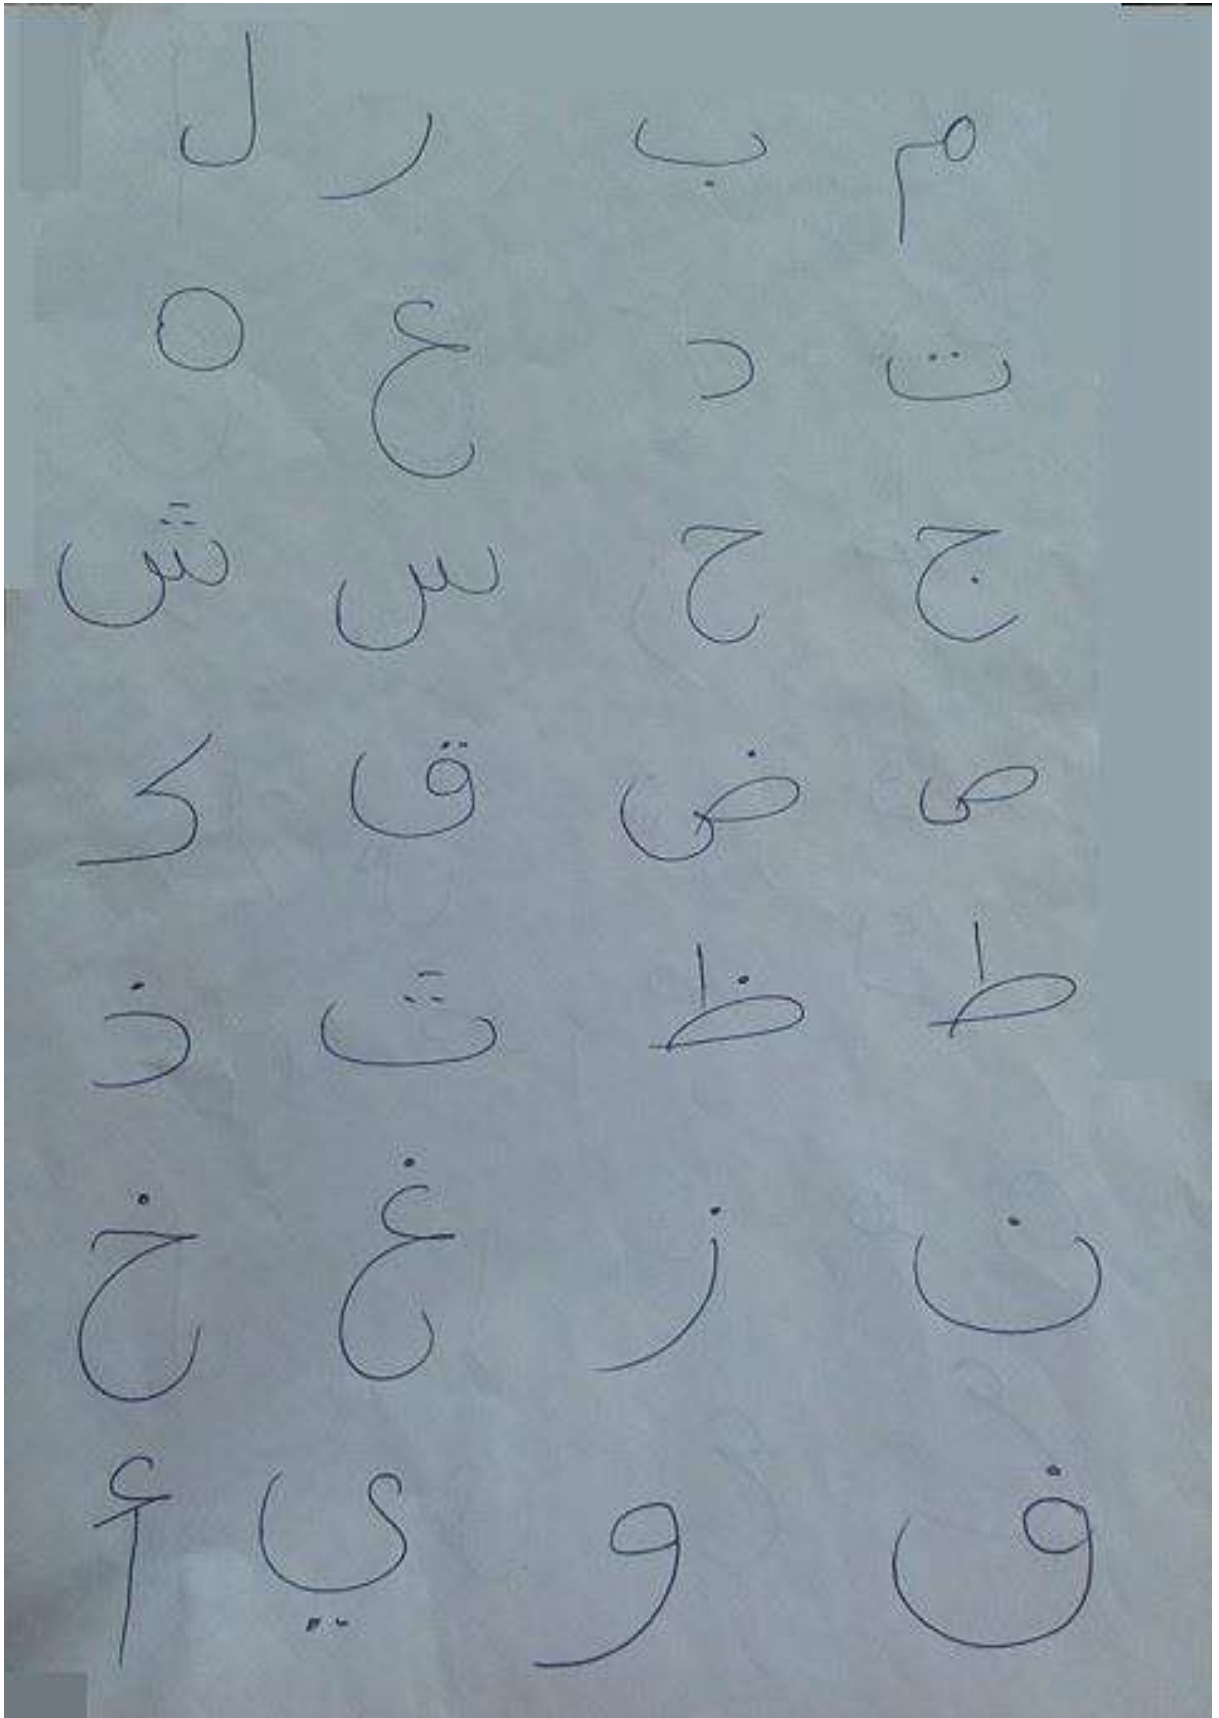 م ب ر ل
ت د ع ه
ج ح س ش
ص ض ق ک
ط ظ ث ذ
ن ز غ خ
ف و ي أ